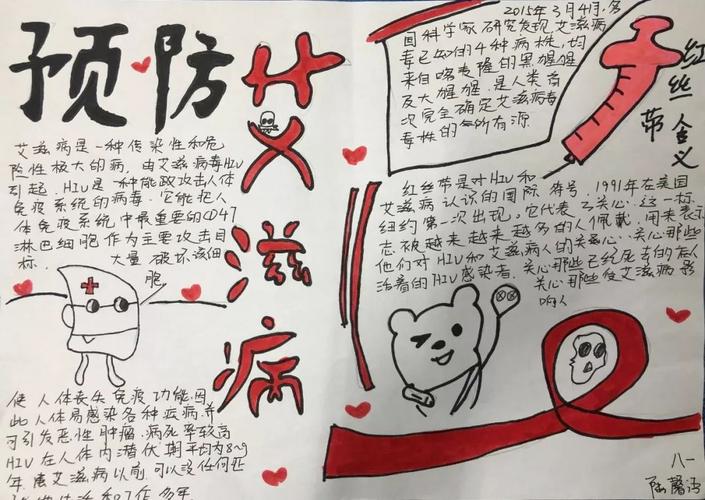 预防
艾滋病
艾滋病是一种传染性和危
险性极大的病,由艾滋病毒HIV
引起,HIV是一种能攻击人体
免疫系统的病毒。它能把人
体免疫系统中最重要的CD4T
淋巴细胞作为主要攻击目
标,大量破坏该细
胞
使人体丧失免疫功能,因
此人体易感染各种疾病,并
可引发恶性肿瘤,病死率较高
HIV在人体内潜伏期平均为8~9
年,患艾滋病以前,可以没有任何
生活和工作多年
2015年3月4日,多
国科学家研究发现,艾滋病
毒已知的4种病株,均
来自喀麦隆的黑猩猩
及大猩猩,是人类首
次完全确定艾滋病毒
毒株的所有源
红丝带含义
红丝带是对HIV和
艾滋病认识的国际符号,1991年在美国
纽约第一次出现,它代表了关心,这一标
志被越来越多的人佩戴,用来表示
他们对HIV和艾滋病人的关心,关心那些
活着的HIV感染者,关心那些已经死去的病人
关心那些受艾滋病影
响人
八一